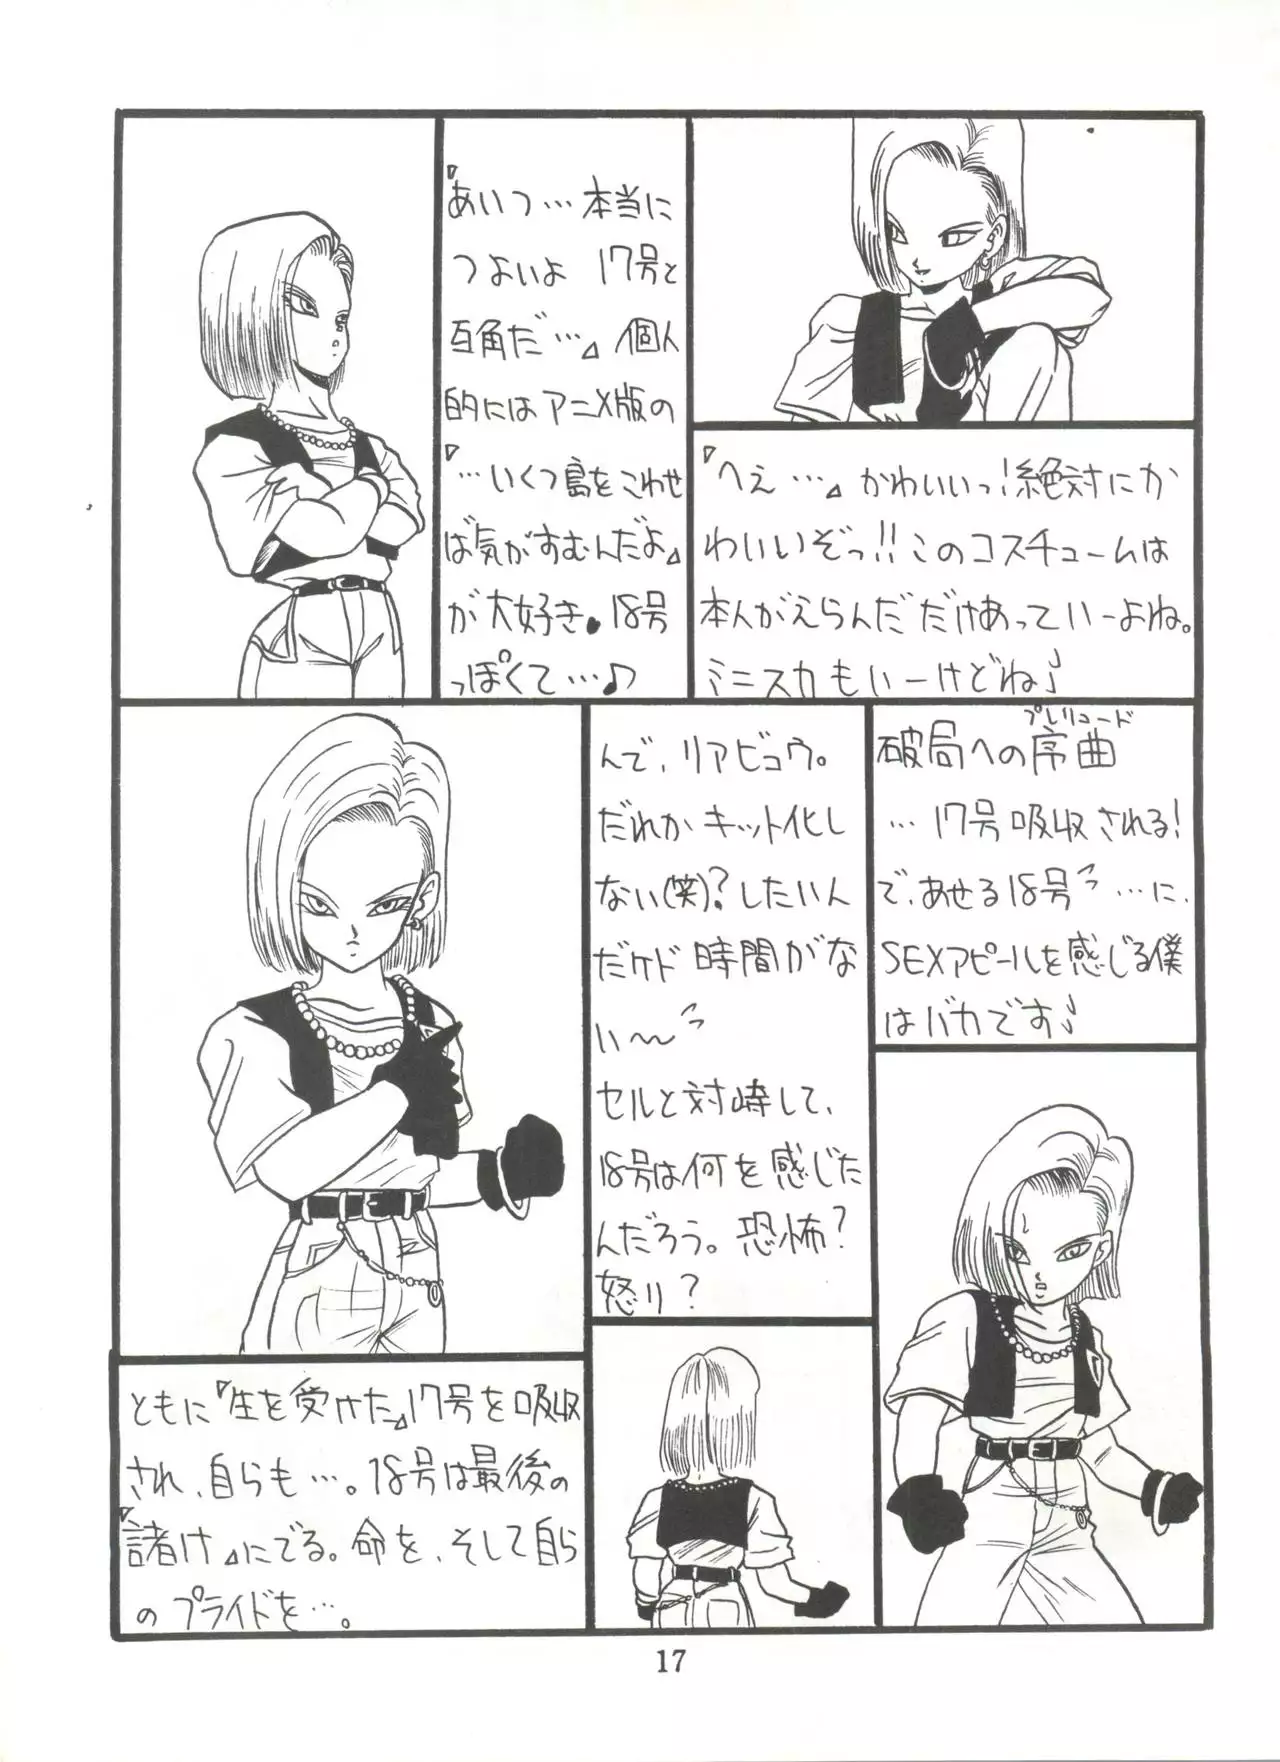 『へえ…』かわいいっ!絶対にか
わいいぞっ!!このコスチュームは
本人がえらんだだけあっていーよね。
ミニスカもいーけどね♪
『あいつ…本当に
つよいよ 17号と
互角だ…』個人
的にはアニメ版の
『…いくつ島をこわせ
ば気がすむんだよ』
が大好き。18号
っぽくて…♪
プレリュード
破局への序曲
…17号吸収される!
で、あせる18号…に、
SEXアピールを感じる僕
はバカです♪
んで、リアビュウ。
だれかキット化し
ない(笑)?したいん
だケド時間がな
い〜
セルと対峙して、
18号は何を感じた
んだろう。恐怖?
怒り?
ともに『生を受けた』17号を吸収
され、自らも…。18号は最後の
『諸け』にでる。命を、そして自ら
のプライドを…。
17